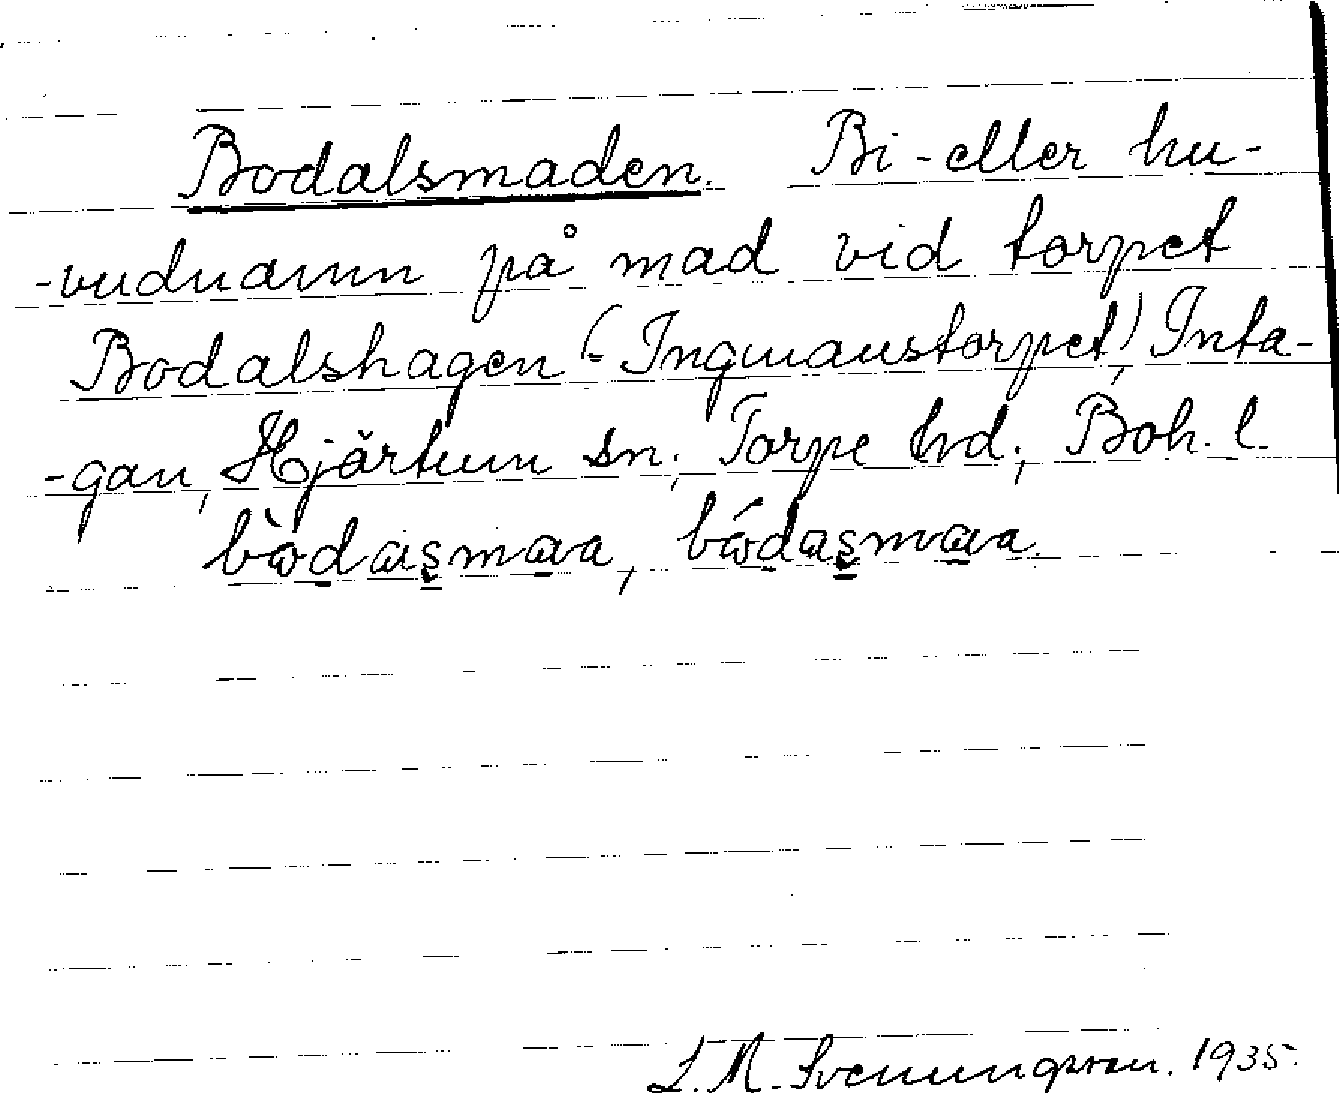 Bodalsmaden. Bi- eller hu-
-vudnamn på mad vid torpet
Bodalshagen (- Ingmanstorpet), Inta-
-gan, Hjärtum sn; Torpe hd; Boh. l.
bòdaşmaa, bódaşmaa.
L. M. Svenungsson. 1935.